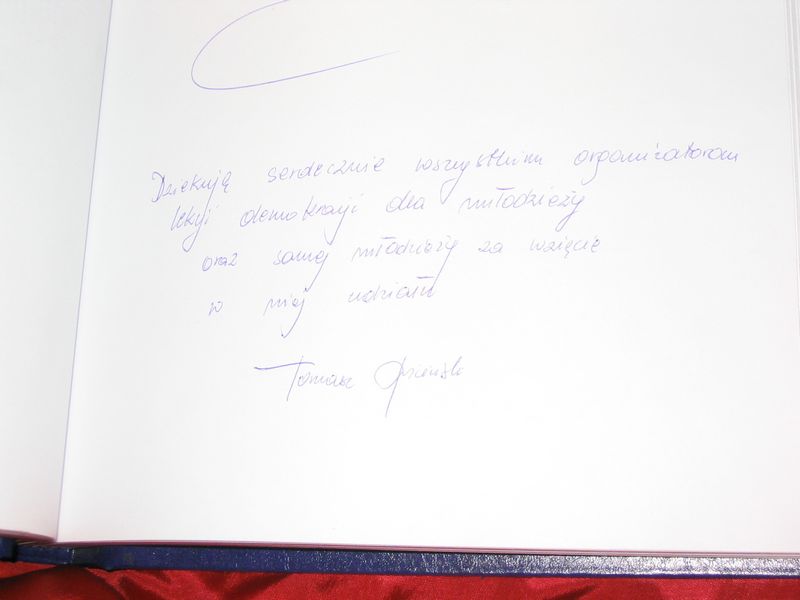 Dziękuję serdecznie wszystkim organizatorom
lekcji demokracji dla młodzieży
oraz samej młodzieży za wzięcie
w niej udziału
Tomasz